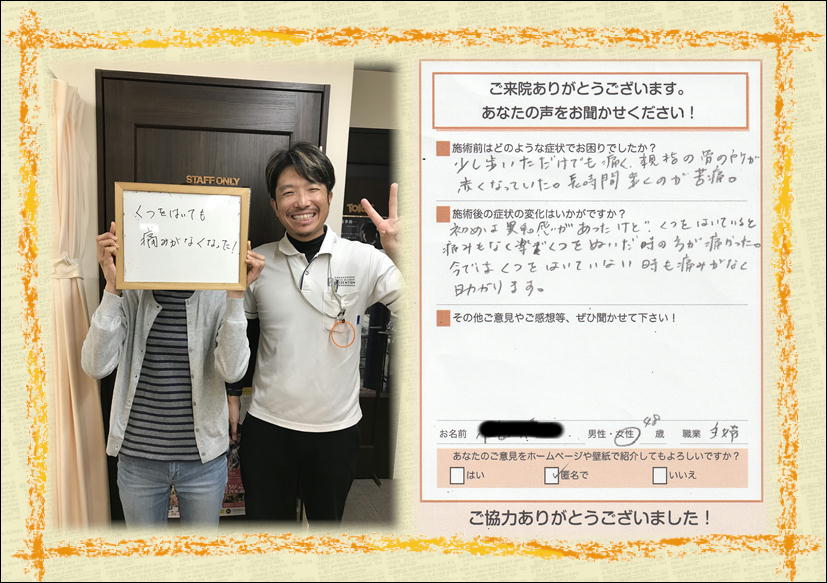 STAFF ONLY
くつをはいても
痛みがなくなった！
ご来院ありがとうございます。
あなたの声をお聞かせください！
施術前はどのような症状でお困りでしたか？
少し歩いただけでも痛く、親指の骨の所が
赤くなっていた。長時間歩くのが苦痛。
施術後の症状の変化はいかがですか？
初めは異和感があったけど、くつをはいていると
痛みもなく楽でくつをぬいだ時の方が痛かった。
今ではくつをはいていない時も痛みがなく
助かります。
その他ご意見やご感想等、ぜひ聞かせて下さい！
お名前 男性・女性 48歳 職業 主婦
あなたのご意見をホームページや壁紙で紹介してもよろしいですか？
はい 匿名で いいえ
ご協力ありがとうございました！